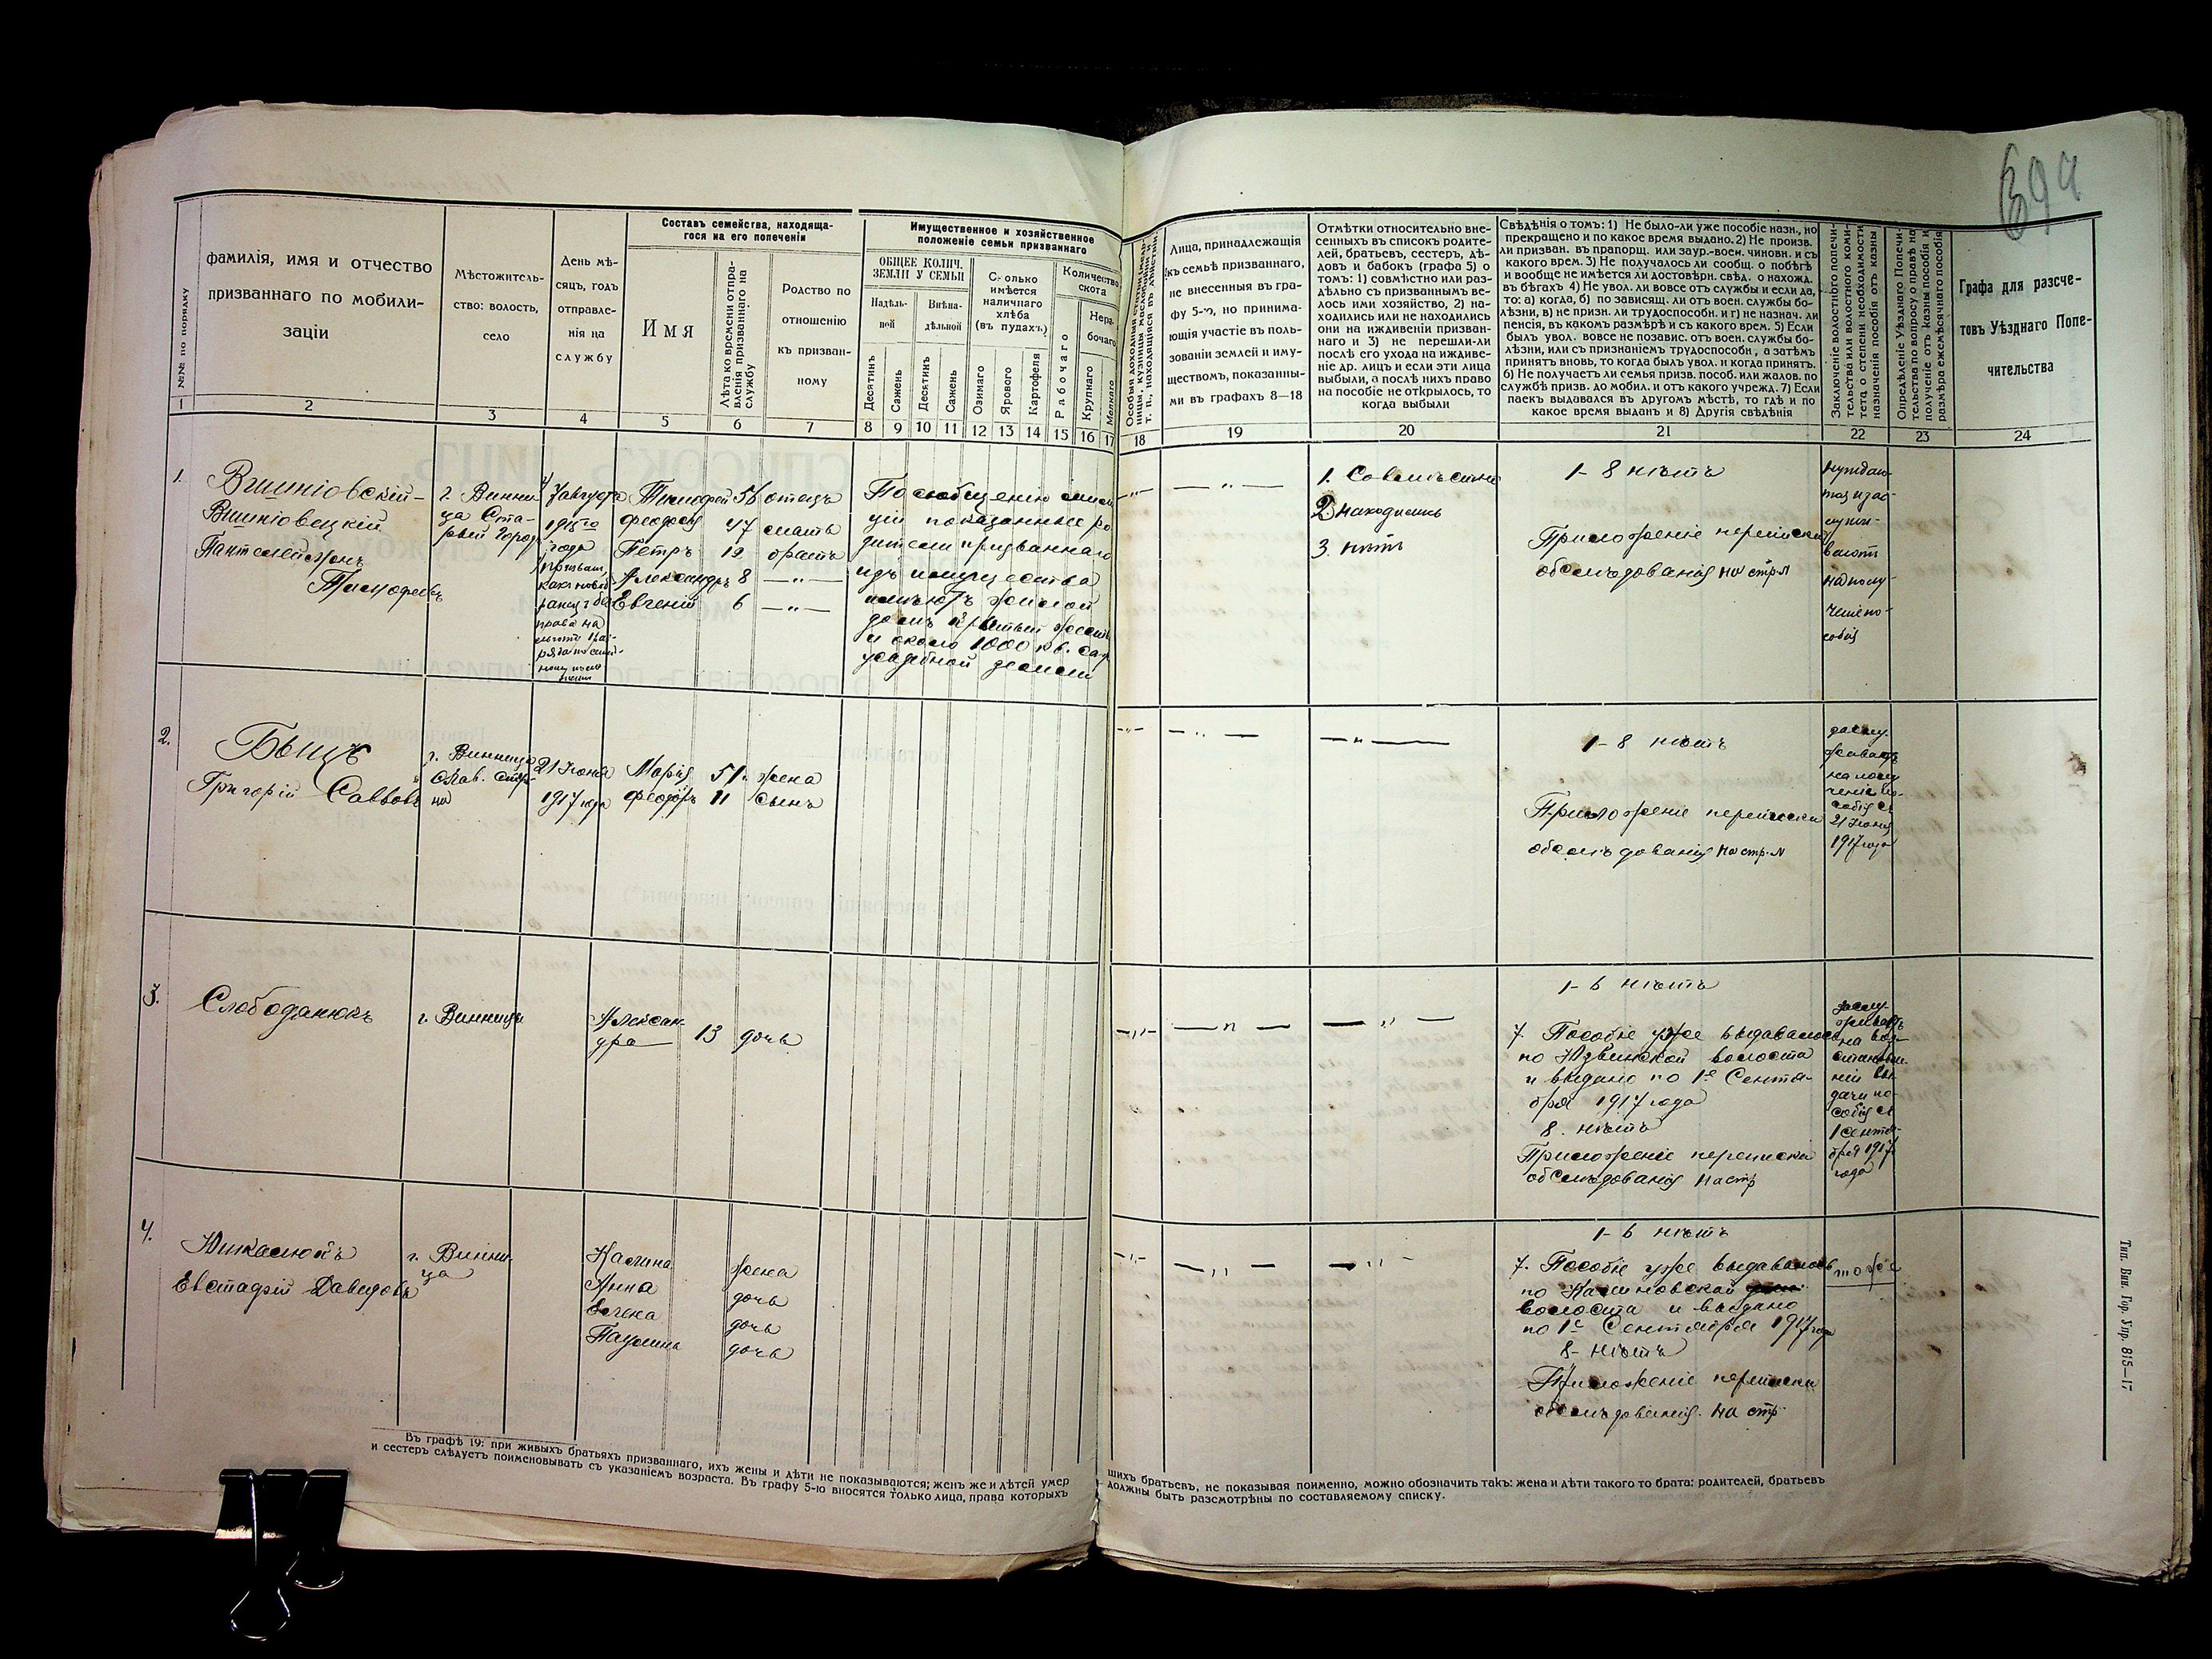 694
№№ по порядку
фамилія, имя и отчество
призваннаго по мобили-
заціи
Мѣстожитель-
ство: волость,
село
День мѣ-
сяцъ, годъ
отправле-
нія на
службу
Составъ семейства, находяща-
гося на его попеченіи
Имя
Лѣта ко времени отпра-
вленія призваннаго на
службу
Родство по
отношенію
къ призван-
ному
Имущественное и хозяйственное
положеніе семьи призваннаго
ОБЩЕЕ КОЛИЧ.
ЗЕМЛИ У СЕМЬИ
Надѣль-
ной
Внѣна-
дѣльной
Десятинъ
Сажень
Десятинъ
Сажень
Сколько
имѣется
наличнаго
хлѣба
(въ пудахъ)
Озимаго
Ярового
Картофеля
Количество
скота
Рабочаго
Нера-
бочаго
Крупнаго
Мелкаго
Лица, принадлежащія
къ семьѣ призваннаго,
не внесенныя въ гра-
фу 5-ю, но принима-
ющія участіе въ поль-
зованіи землей и иму-
ществомъ, показанны-
ми въ графахъ 8—18
Отмѣтки относительно вне-
сенныхъ въ списокъ родите-
лей, братьевъ, сестеръ, дѣ-
довъ и бабокъ (графа 5) о
томъ: 1) совмѣстно или раз-
дѣльно съ призваннымъ ве-
лось ими хозяйство, 2) на-
ходились или не находились
они на иждивеніи призван-
наго и 3) не перешли-ли
послѣ его ухода на иждиве-
ніе др. лицъ и если эти лица
выбыли, а послѣ нихъ право
на пособіе не открылось, то
когда выбыли
Свѣдѣнія о томъ: 1) Не было-ли уже пособіе назн., но
прекращено и по какое время выдано. 2) Не произв.
ли призван. въ прапорщ. или заур.-воен. чиновн. и съ
какого врем. 3) Не получалось ли сообщ. о побѣгѣ
и вообще не имѣется ли достовѣрн. свѣд. о нахожд.
въ бѣгахъ 4) Не увол. ли вовсе отъ службы и если да,
то: а) когда, б) по зависящ. ли отъ воен. службы бо-
лѣзни, в) не призн. ли трудоспособн. и г) не назнач. ли
пенсія, въ какомъ размѣрѣ и съ какого врем. 5) Если
былъ увол. вовсе не позавис. отъ воен. службы бо-
лѣзни, или съ признаніемъ трудоспособн., а затѣмъ
принятъ вновь, то когда былъ увол. и когда принятъ.
6) Не получаетъ ли семья призв. пособ. или жалов. по
службѣ призв. до мобил. и отъ какого учрежд. 7) Если
паекъ выдавался въ другомъ мѣстѣ, то гдѣ и по
какое время выданъ и 8) Другія свѣдѣнія
Заключеніе волостного попечи-
тельства или волостного коми-
тета о степени необходимости
назначенія пособія отъ казны
Опредѣленіе Уѣзднаго Попечи-
тельства по вопросу о правѣ на
полученіе отъ казны пособія и
размѣра ежемѣсячнаго пособія
Графа для разсче-
товъ Уѣзднаго Попе-
чительства
1 2 3 4 5 6 7 8 9 10 11 12 13 14 15 16 17 18 19 20 21 22 23 24
1.
Вишніовскій-
Вишніовецкій
Пантелеймонъ
Тимофеевъ
г. Винни
ца Ста-
рый Город
7 августа
1915го
года
Тимофей 56 отецъ
Феодосія 47 мать
Петръ 19 братъ
Александръ 8 — „ —
Евгеній 6 — „ —
По сообщенію мили
ціи показанные ро
дители призваннаго
изъ имущества
имѣютъ жилой
домъ крытый жест
и около 1000 кв. саж
усадебной земли
— „ —
1. Совмѣстно
2. Находились
3. нѣтъ
1-8 нѣтъ
Приложеніе переписки
обслѣдованія на стр. №
2.
Быцъ
Григорій Саввовъ
г. Винница
Слав. Стри
на
21 Іюня
1917 года
Марія 51. жена
Феодоръ 11 сынъ
— „ —
— „ —
1-8 нѣтъ
Приложеніе переписки
обслѣдованія на стр. №
заслу-
живаетъ
на полу-
ченіе по-
собія съ
21 Іюня
1917 года
3.
Слободанюкъ
г. Винница
Алексан-
дра 13 дочь
— „ —
— „ —
1-6 нѣтъ
7. Пособіе уже выдавалось
по Юзвинской волости
и выдано по 1е Сентя-
бря 1917 года
8. нѣтъ
Приложеніе переписки
обслѣдованія на стр
заслу-
живаетъ
на воз-
становле-
ніи вы-
дачи по-
собія съ
1 сентя-
бря 1917
года
4.
Евстафій Давидовъ
г. Винни-
ца
Калина жена
Анна дочь
Елена дочь
Паулина дочь
— „ —
— „ —
1-6 нѣтъ
7. Пособіе уже выдавалось
по Калиновской
волости и выдано
по 1е Сентября 1917 года
8- нѣтъ
Приложеніе переписки
обслѣдованія на стр.
тоже
Въ графѣ 19: при живыхъ братьяхъ призваннаго, ихъ жены и дѣти не показываются; женъ же и дѣтей умер
шихъ братьевъ, не показывая поименно, можно обозначить такъ: жена и дѣти такого то брата: родителей, братьевъ
и сестеръ слѣдуетъ поименовывать съ указаніемъ возраста. Въ графу 5-ю вносятся только лица, права которыхъ
должны быть разсмотрѣны по составляемому списку.
Тип. Вин. Гор. Упр. 815—17